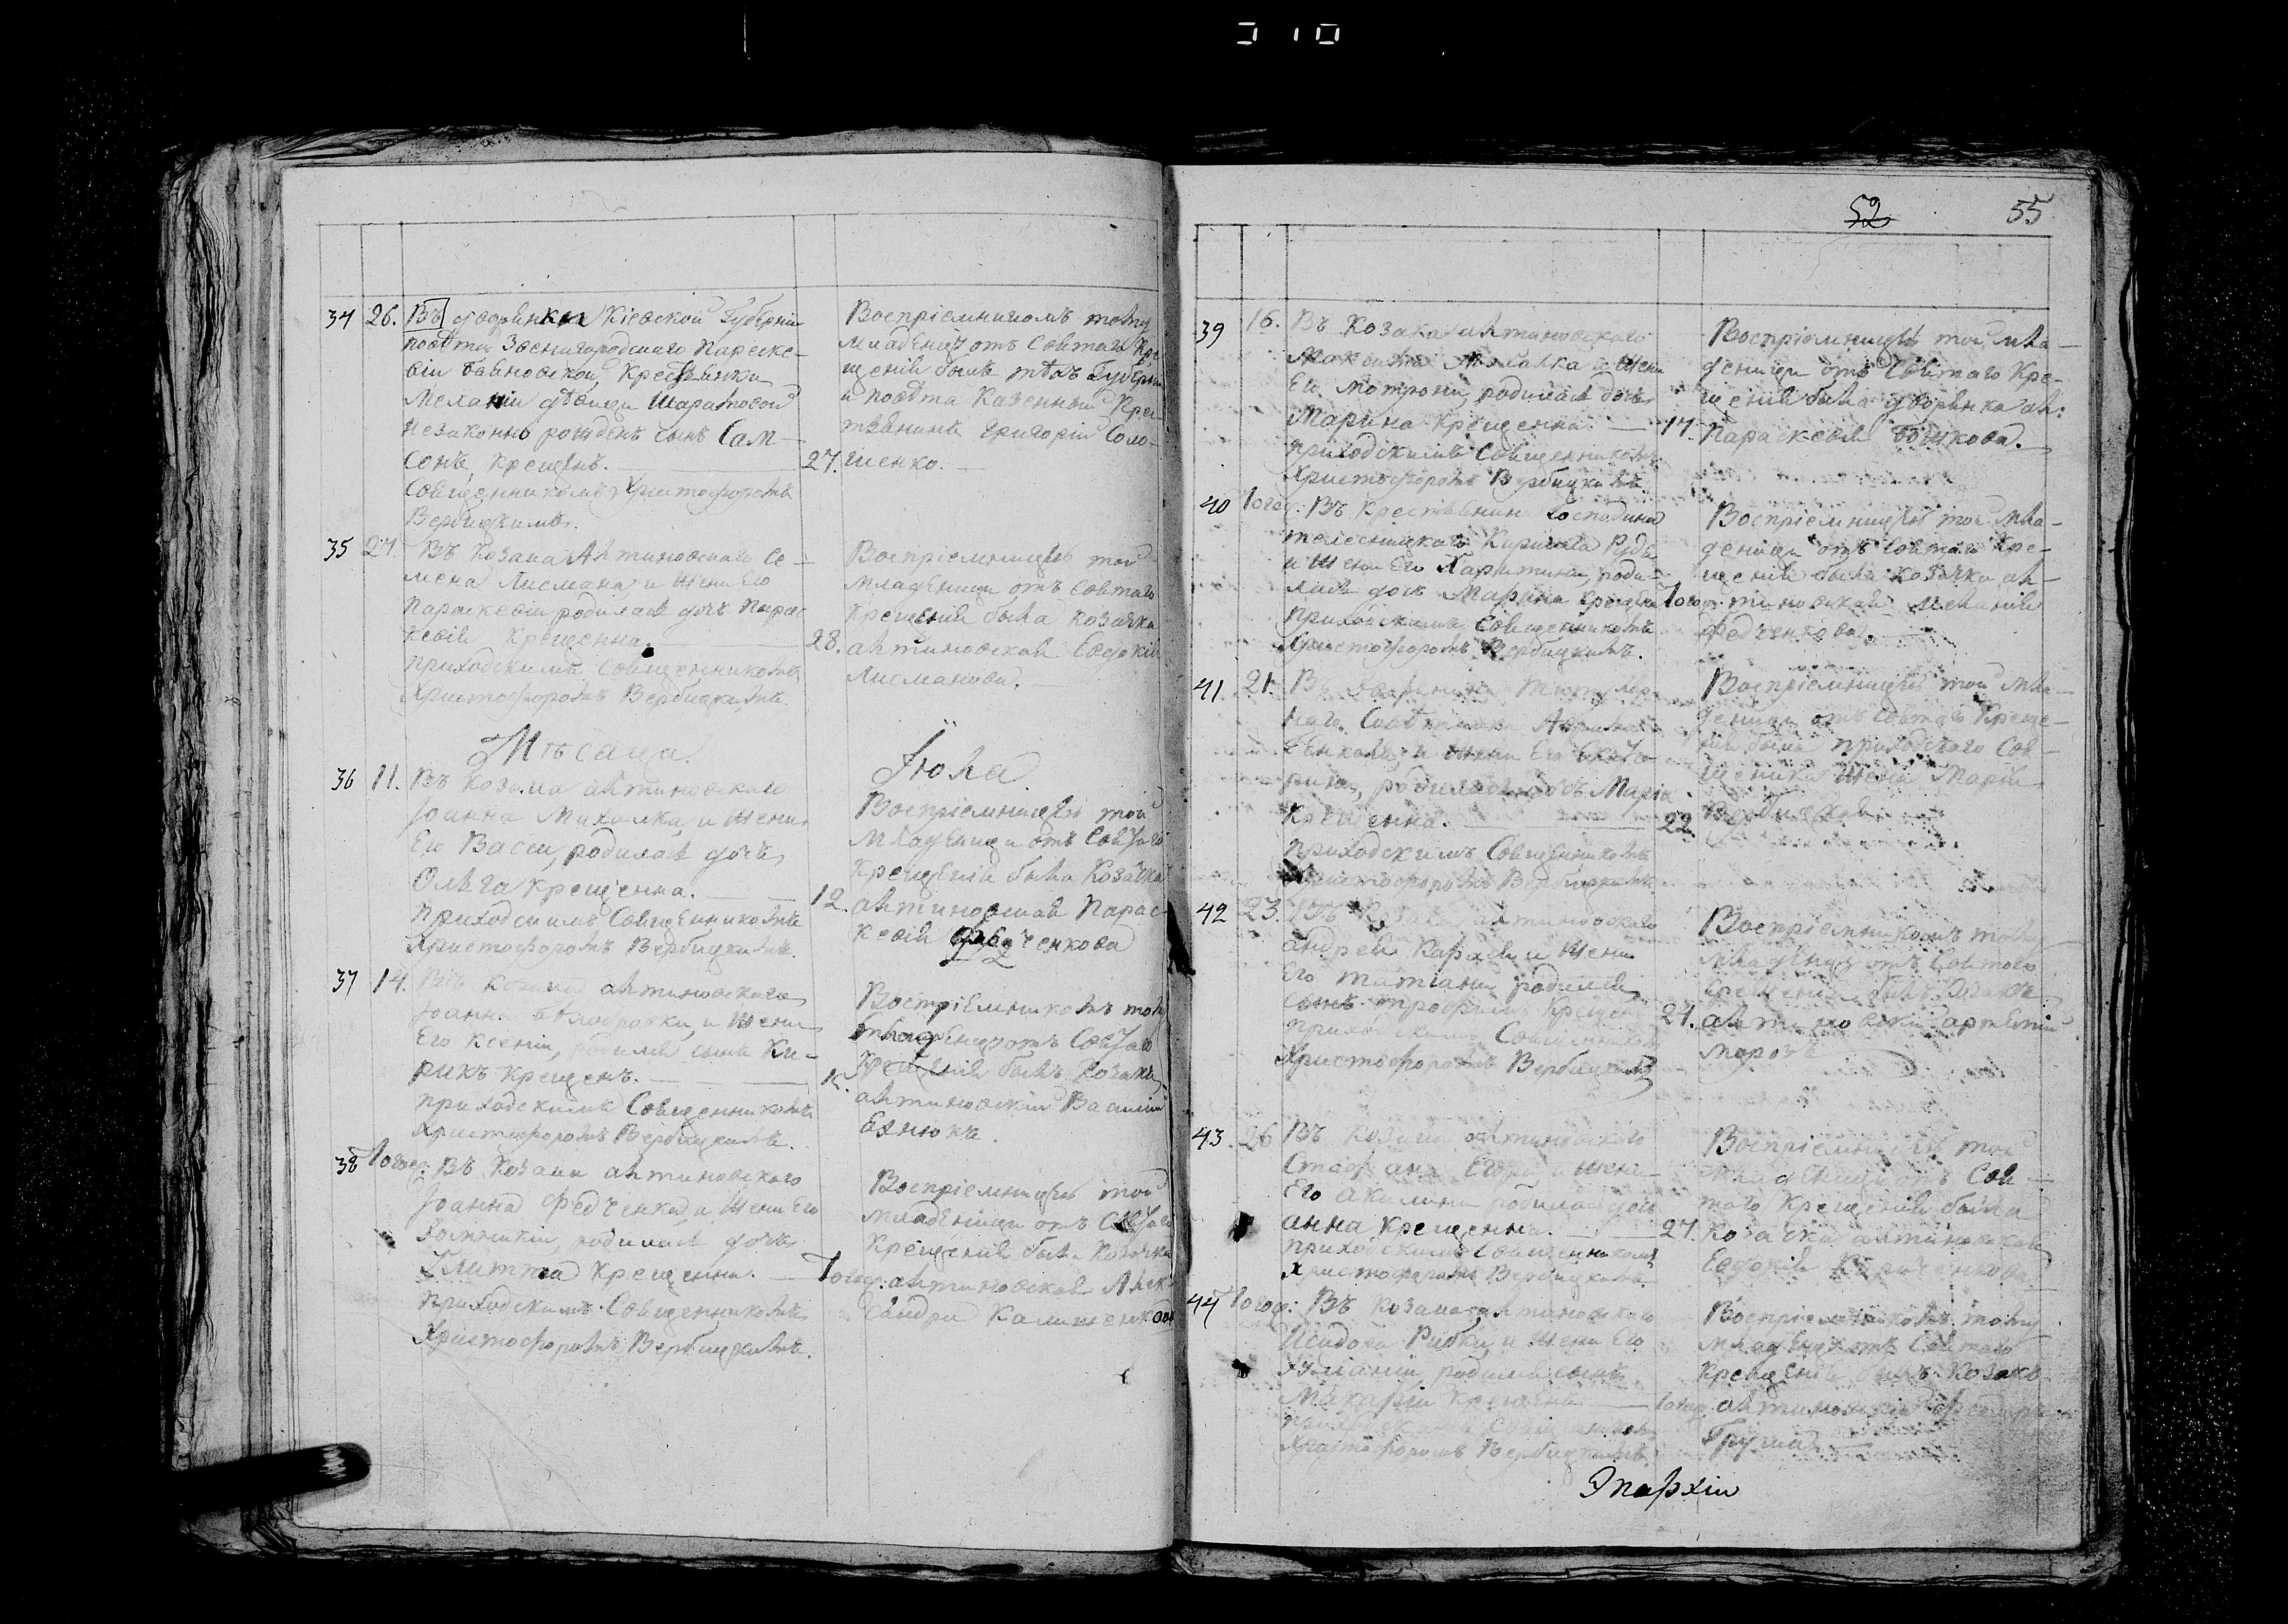 34 26. Въ дворянки Кіевской Губерніи
повѣта Звенигородскаго Параске-
віи крестьянки
Меланіи дѣвици
незаконно рожденъ сынъ Сам-
сонъ, крещенъ.
Священникомъ Христофоромъ
Вербицкимъ.
Воспріемникомъ тому
младенцу отъ Святаго Кре-
щенія былъ тѣхъ Губерніи
и повѣта Казенный Крес-
тьянинъ Григорій Соло-
27. шенко.
35 27. Въ Козака Алтиновскаго Се-
мена Лисмана и жени Его
Параскевіи родилась дочь Парас
кевія Крещенна.
приходскимъ Священникомъ
Христофоромъ Вербицкимъ.
Воспріемницею той
младеници отъ Святаго
Крещенія была Козачка
28. алтиновская Евдокія
Лисманова.
Мѣсаца Іюла
36 11. Въ Козака алтиновскаго
Іоанна Михалка, и жени
Его Васси, родилась дочь
Ольга крещенна.
приходскимъ Священникомъ
Христофоромъ Вербицкимъ.
Воспріемницею той
младеници отъ Святаго
Крещенія была Козачка
12. алтиновская Парас-
кевія
37 14. Въ Козака алтиновскаго
Іоанна и жени
Его Ксеніи, родился сынъ Ки-
рикъ крещенъ.
приходскимъ Священникомъ
Христофоромъ Вербицкимъ.
Воспріемникомъ тому
младенцу отъ Святаго
Крещенія былъ Козакъ
15. алтиновскій Василій
38 Того: Въ Козака алтиновскаго
Іоанна Федченка, и жени Его
родилась дочь
Улитта Крещенна.
приходскимъ Священникомъ
Христофоромъ Вербицкимъ.
Воспріемницею той
младеници отъ Святаго
Крещенія была Козачка
Того: алтиновская Алек-
сандра
52 55
39 16. Въ Козака алтиновскаго
Максима Михалка и жени
Его Мотрони, родилась дочь
Марина крещенна.
приходскимъ Священникомъ
Христофоромъ Вербицкимъ
Воспріемницею той мла-
деници отъ Святаго Кре-
щенія была дворянка ал:
17. Параскевія
40 Того: Въ Крестьянина Господина
Кирилла Руд
и жени Его Харитини, роди-
лась дочь Марина крещенна
приходскимъ Священникомъ
Христофоромъ Вербицкимъ.
Воспріемницею той мла-
деници отъ Святаго Кре-
щенія была козачка ал-
Того: тиновская Меланія
Федченкова.
41. 21. Въ дворянина Титуляр-
наго Совѣтника
и жени Его Екате-
рини, родилась дочь Марія
Крещенна.
приходскимъ Священникомъ
Христофоромъ Вербицкимъ
Воспріемницею той мла-
деници отъ Святаго Креще-
нія была приходскаго Свя-
щеника жена Марія
22. Вербицкая
42 23. Въ Козака алтиновскаго
андрея и жени
Его татіани родился
сынъ трофимъ Крещенъ
приходскимъ Священникомъ
Христофоромъ Вербицкимъ
Воспріемникомъ тому
младенцу отъ Святаго
Крещенія былъ Козакъ
24. алтиновскій артемій
морозъ
43. 26 Въ Козака алтиновскаго
и жени
Его акилини родилась дочь
анна крещенна.
приходскимъ Священникомъ
Христофоромъ Вербицкимъ
Воспріемницею той
младеници отъ Свя-
таго Крещенія была
27. Козачка алтиновская
Евдокія
44 Того: Въ Козака алтиновскаго
Исидора Рибки и жени Его
Уліаніи, родился сынъ
Макарій Крещенъ
приходскимъ Священникомъ
Христофоромъ Вербицкимъ.
Воспріемникомъ тому
младенцу отъ Святаго
Крещенія былъ Козакъ
Того: алтиновскій
Груша
Эпархіи